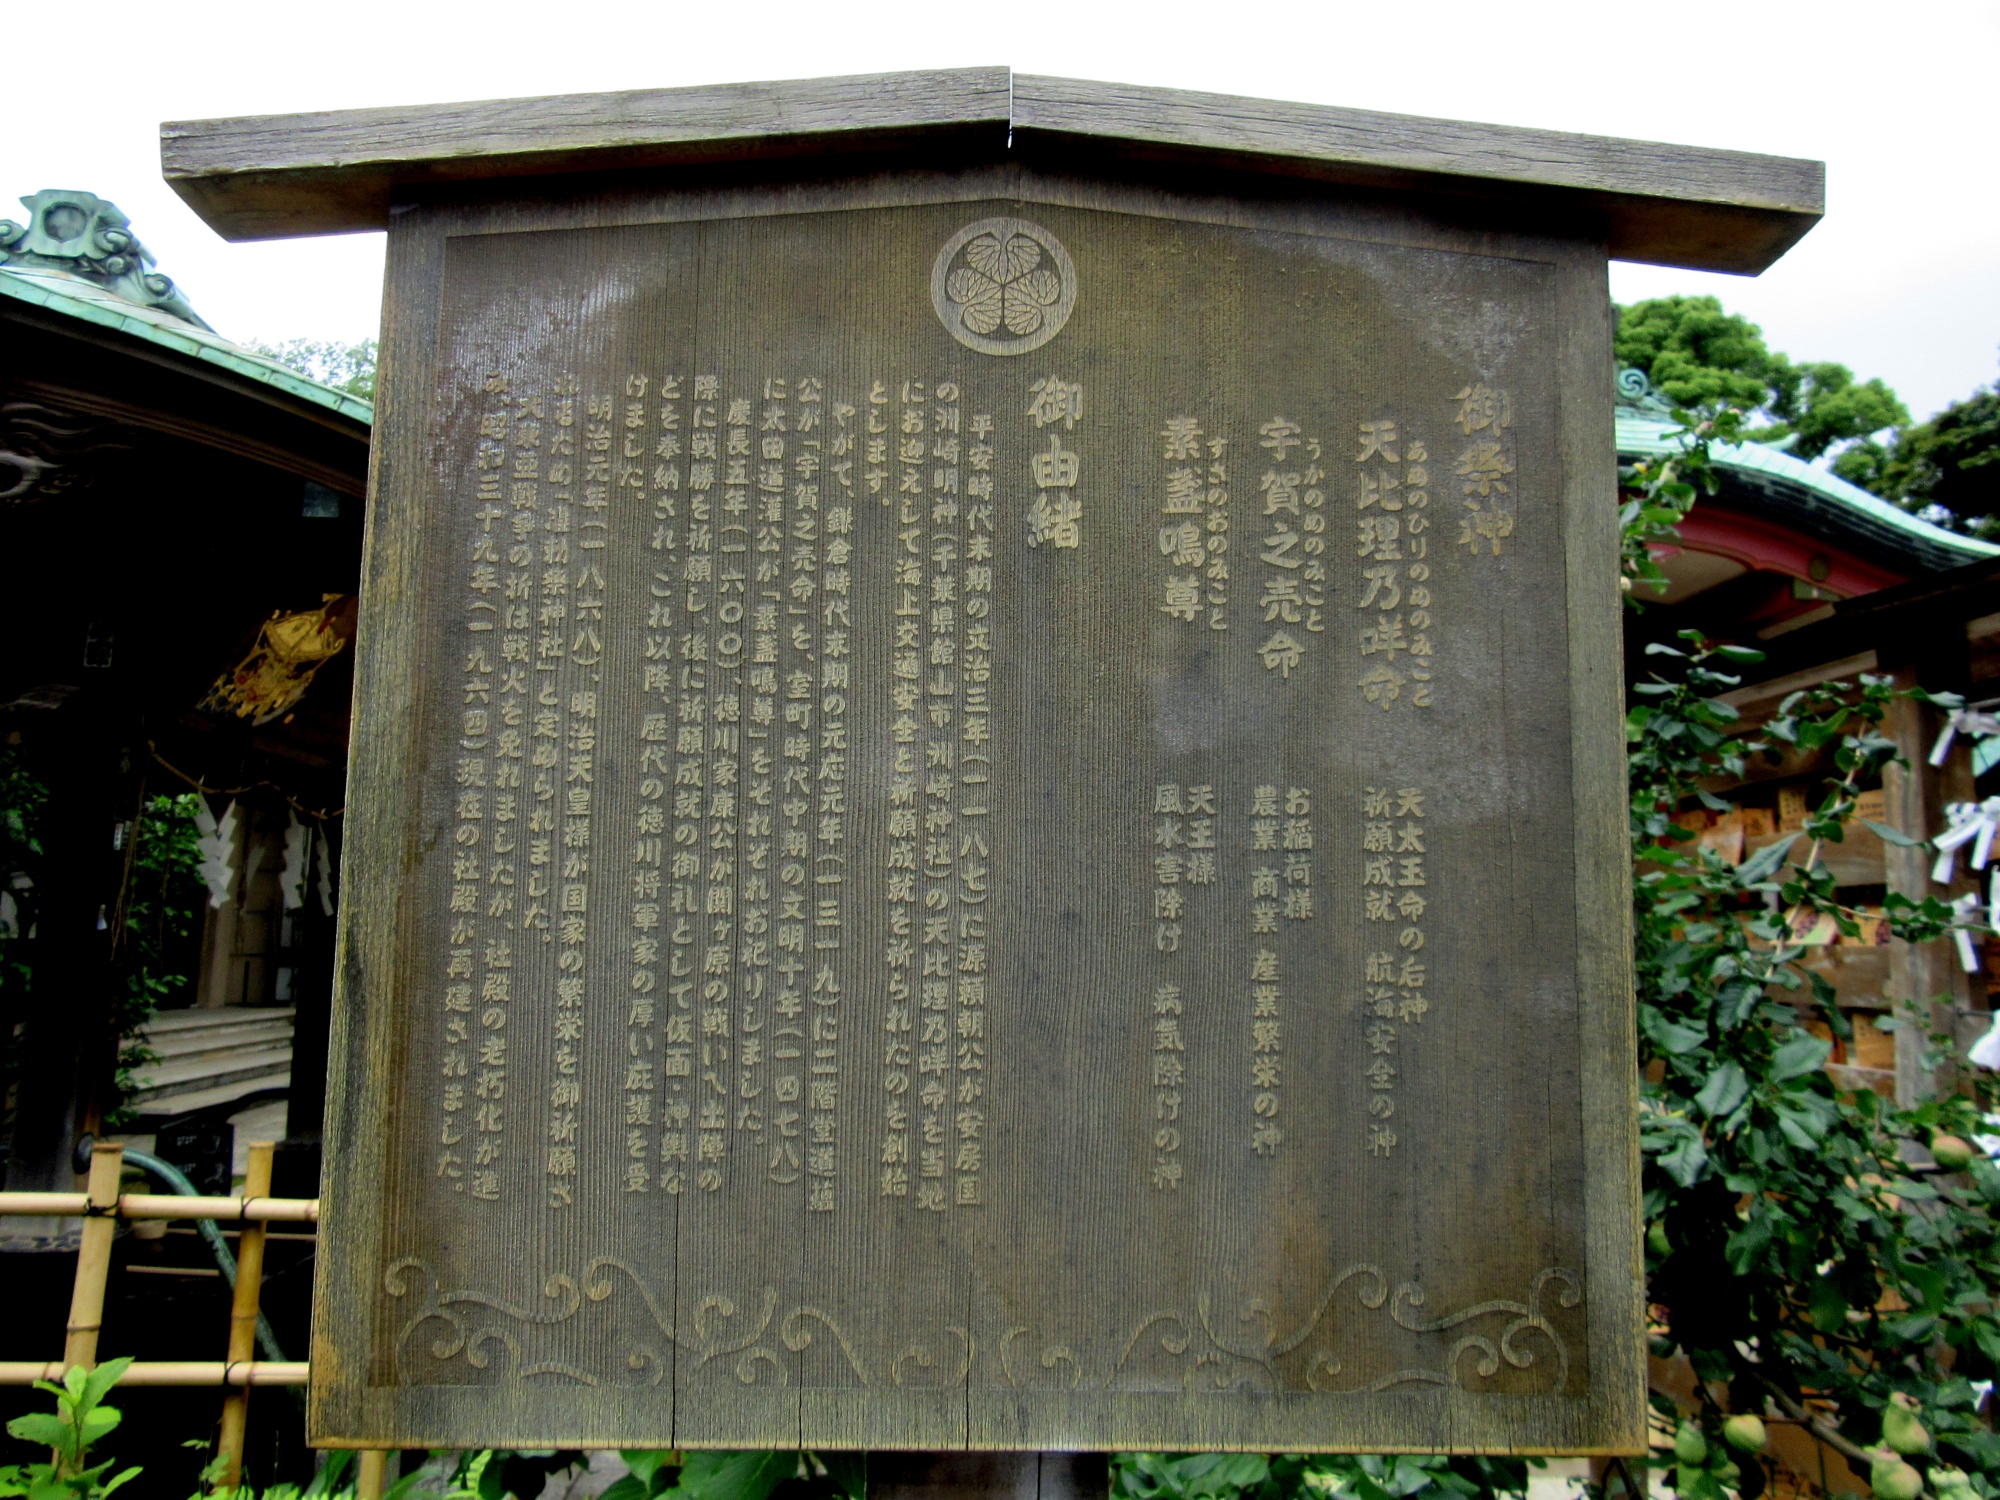 御祭神
あめのひりのめのみこと
天比理乃咩命
天太玉命の后神
祈願成就 航海安全の神
うかのめのみこと
宇賀之売命
お稲荷様
農業 商業 産業繁栄の神
すさのおのみこと
素盞嗚尊
天王様
風水害除け 病気除けの神
御由緒
平安時代末期の文治三年(一一八七)に源頼朝公が安房国
の洲崎明神(千葉県館山市 洲崎神社)の天比理乃咩命を当地
にお迎えして海上交通安全と祈願成就を祈られたのを創始
とします。
やがて、鎌倉時代末期の元応元年(一三一九)に二階堂道蘊
公が「宇賀之売命」を、室町時代中期の文明十年(一四七八)
に太田道灌公が「素盞嗚尊」をそれぞれお祀りしました。
慶長五年(一六〇〇)、徳川家康公が関ヶ原の戦いへ出陣の
際に戦勝を祈願し、後に祈願成就の御礼として仮面・神輿な
どを奉納され、これ以降、歴代の徳川将軍家の厚い庇護を受
けました。
明治元年(一八六八)、明治天皇様が国家の繁栄を御祈願さ
れるため「准勅祭神社」と定められました。
大東亜戦争の折は戦火を免れましたが、社殿の老朽化が進
み昭和三十九年(一九六四)現在の社殿が再建されました。